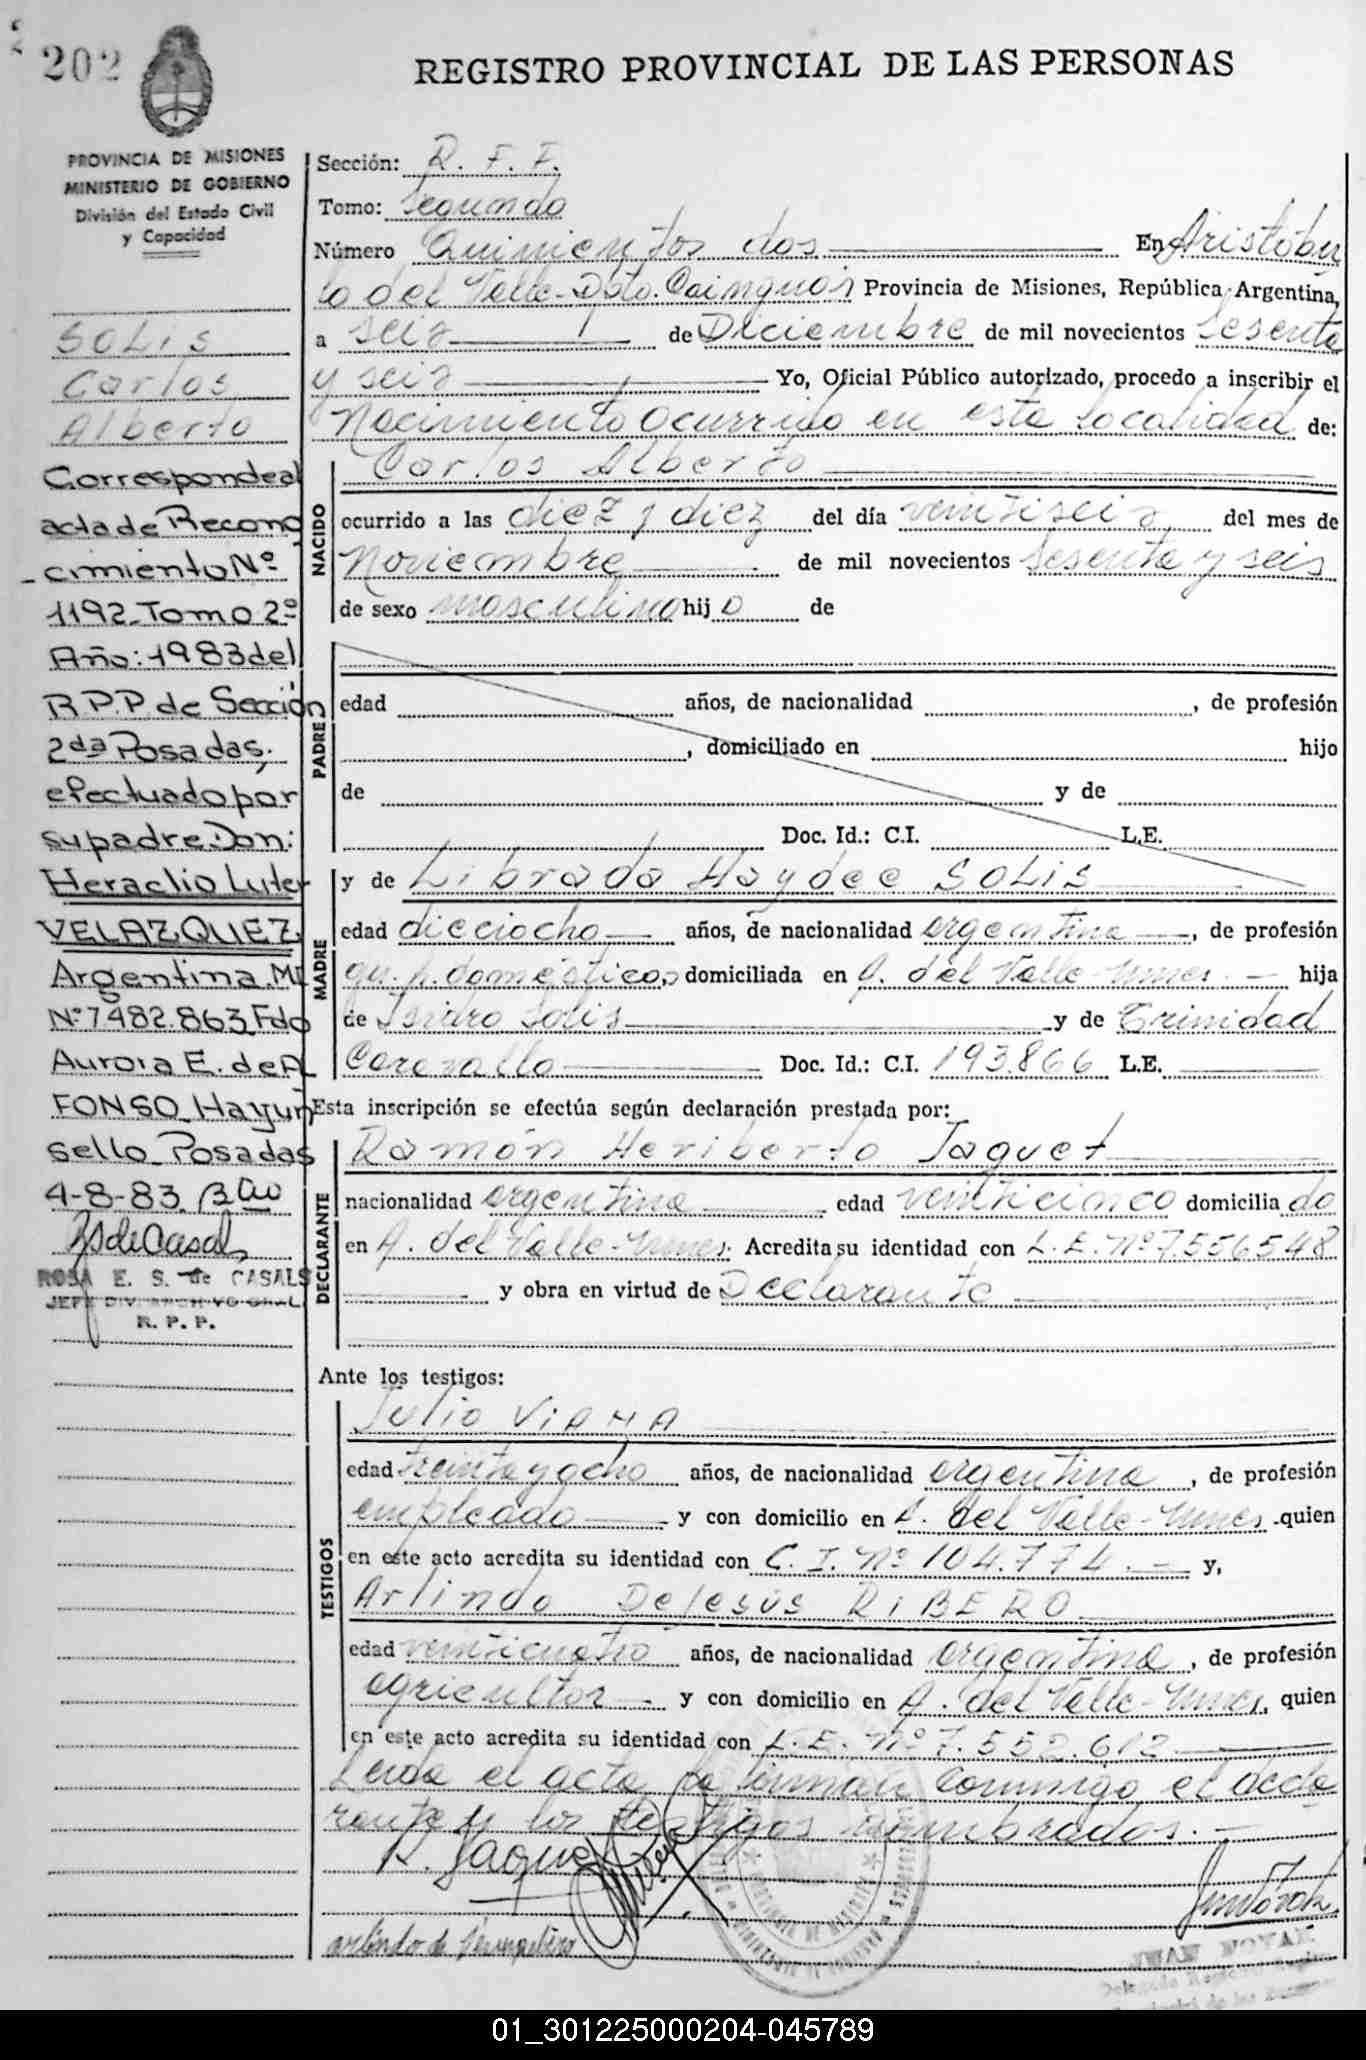 202
REGISTRO PROVINCIAL DE LAS PERSONAS
PROVINCIA DE MISIONES
MINISTERIO DE GOBIERNO
División del Estado Civil
y Capacidad
SOLIS
Carlos
Alberto
Corresponde al
acta de Recono
cimiento Nº
1192 Tomo 2º
Año: 1983 del
R.P.P. de Sección
2da Posadas,
efectuado por
su padre Don:
Heraclio Luter
VELAZQUEZ
Argentina. MI
Nº 7482.863 Fdo
Aurora E. de A
FONSO Hay un
sello Posadas
4-8-83
RSdeCasals
ROSA E. S. de CASALS
JEFE DIV. ARCHIVO GRAL.
R. P. P.
Sección: R. F. F.
Tomo: Segundo
Número Quinientos dos En Aristóbu
lo del Valle-Dpto. Cainguás Provincia de Misiones, República Argentina,
a seis de Diciembre de mil novecientos sesenta
y seis Yo, Oficial Público autorizado, procedo a inscribir el
Nacimiento ocurrido en esta localidad de:
NACIDO
Carlos Alberto
ocurrido a las diez y diez del día veintiseis del mes de
Noviembre de mil novecientos sesenta y seis
de sexo masculino hijo de
PADRE
edad años, de nacionalidad , de profesión
, domiciliado en hijo
de y de
Doc. Id.: C.I. L.E.
MADRE
y de Librada Haydee SOLIS
edad dieciocho años, de nacionalidad argentina, de profesión
qu. h. domésticos domiciliada en A. del Valle-Mnes. hija
de Isidro Solis y de Trinidad
Doc. Id.: C.I. 193.866 L.E.
Esta inscripción se efectúa según declaración prestada por:
DECLARANTE
Ramón Heriberto Jaquet
nacionalidad argentina edad veinticinco domiciliado
en A. del Valle-Mnes. Acredita su identidad con L.E. Nº 7.556.548
y obra en virtud de Declarante
Ante los testigos:
TESTIGOS
Julio VIANA
edad treinta y ocho años, de nacionalidad argentina, de profesión
empleado y con domicilio en A. del Valle-Mnes. quien
en este acto acredita su identidad con C. I. Nº 104.774. y,
Arlindo DeJesús RIBERO
edad veinticuatro años, de nacionalidad argentina, de profesión
agricultor y con domicilio en A. del Valle-Mnes, quien
en este acto acredita su identidad con L.E. Nº 7.552.612
Leida el acta la firman conmigo el decla
rante y los testigos nombrados.
R. Jaquet
JUAN NOVAK
01_301225000204-045789